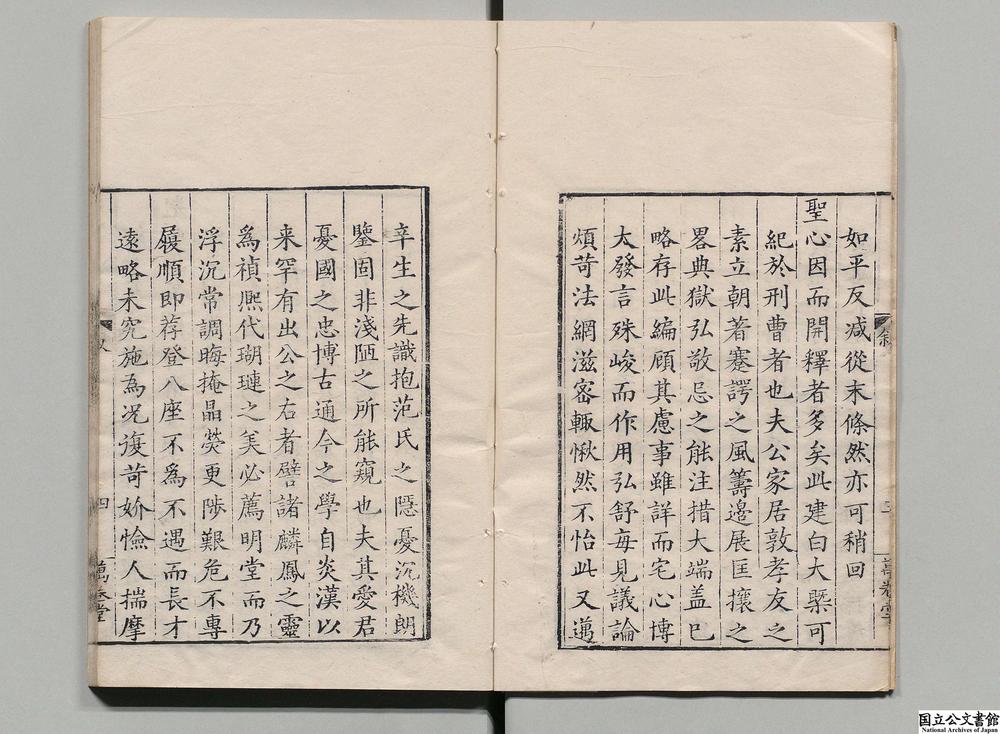 如平反减從末條然亦可稍回
聖心因而開釋者多矣此建白大槩可
紀於刑曹者也夫公家居敦孝友之
素立朝著蹇諤之風籌邊展匡攘之
畧典獄弘敬忌之能注措大端盖已
略存此編顧其慮事雖詳而宅心博
大發言殊峻而作用弘舒每見議論
煩苛法網滋密輙愀然不怡此又邁
辛生之先識抱范氏之隱憂沉機朗
鑒固非淺陋之所能窺也夫其愛君
憂國之忠博古通今之學自炎漢以
来罕有出公之右者譬諸麟鳳之靈
為禎熈代瑚璉之美必薦明堂而乃
浮沉常調晦掩晶熒更陟艱危不專
履順即荐登八座不為不遇而長才
遠略未究施為况復苛妎憸人揣摩
四
萬卷堂
萬卷堂
国立公文書館
National Archives of Japan